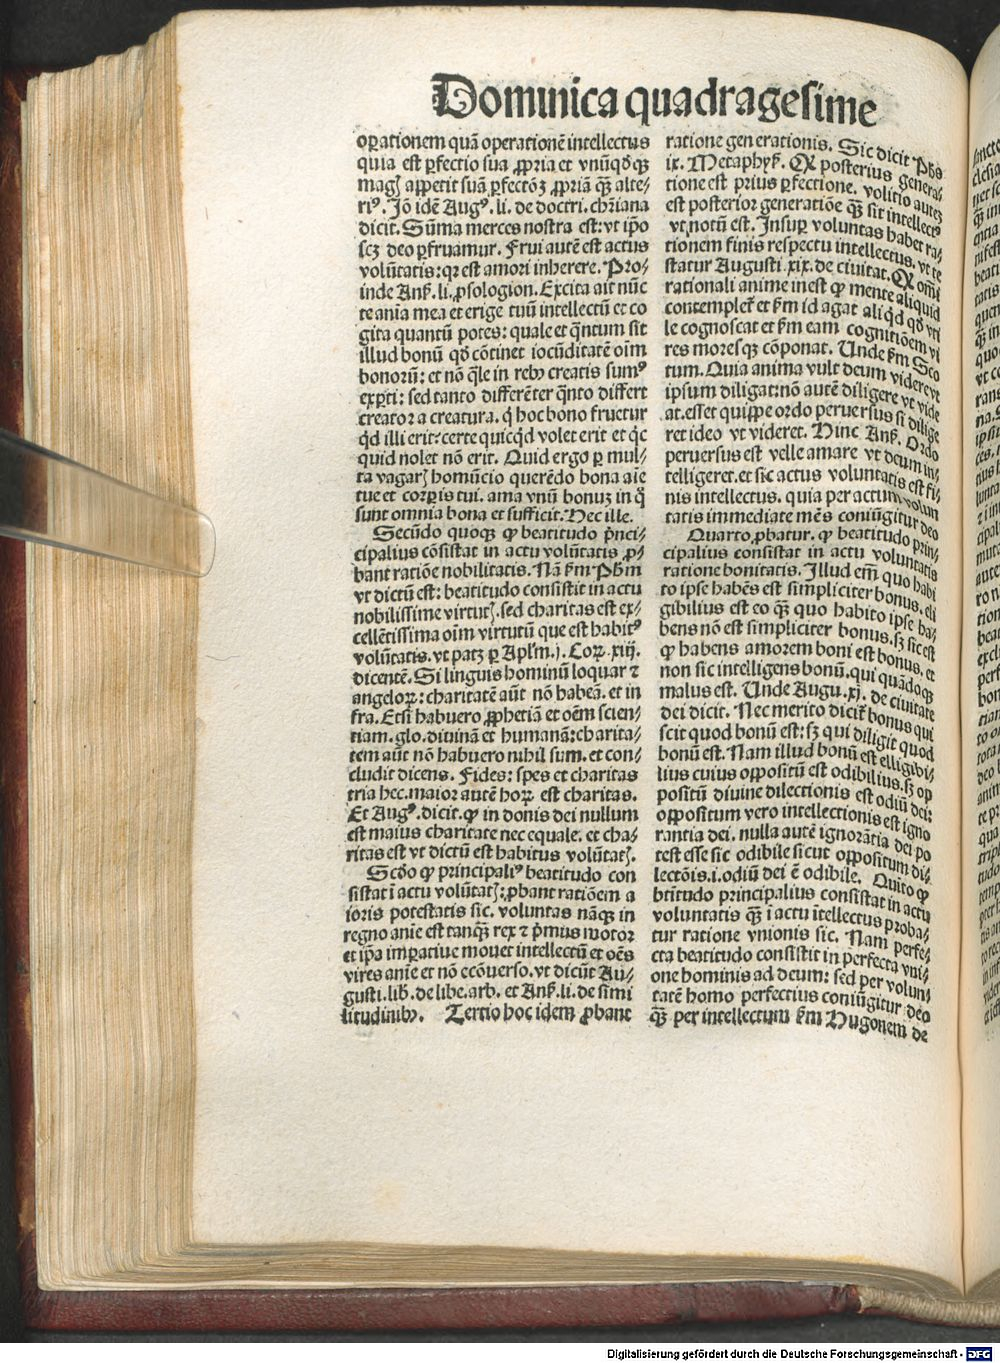 Dominica quadragesime
oꝑationem quā operationē intellectus
quia est ꝑfectio sua ꝓpria et vnūqdqꝫ
magꝭ appetit suā ꝑfectōꝫ ꝓpriā qꝫ̄ alte-
riꝰ. Jō idē Augꝰ. li. de doctri. chriana
dicit. Sūma merces nostra est: vt ip̄o
scꝫ deo ꝑfruamur. Frui autē est actus
volūtatis: qꝛ est amori inherere. Pro-
inde Anẜ. li. ꝓsologion. Excita ait nūc
te anīa mea et erige tuū intellectū et co
gita quantū potes: quale et q̄ntum sit
illud bonū qd̄ cōtinet iocūditatē oīm
bonorū: et nō q̄le in rebꝰ creatis sumꝰ
exꝑti: sed tanto differēter q̄nto differt
creator a creatura. q̇ hoc bono fruetur
qd̄ illi erit: certe quicqd̄ volet erit et q̇c
quid nolet nō erit. Quid ergo ꝑ mul-
ta vagarꝭ homūcio querēdo bona aīe
tue et corꝑis tui. ama vnū bonuꝫ in q̄
sunt omnia bona et sufficit. Hec ille.
Secūdo quoqꝫ ꝙ beatitudo pⁱnci-
cipalius cōsistat in actu volūtatis ꝓ-
bant ratiōe nobilitatis. Nā ẜm Phm
vt dictū est: beatitudo consistit in actu
nobilissime virtutꝭ. sed charitas est ex-
cellētissima oīm virtutū que est habitꝰ
volūtatis. vt patꝫ ꝑ Aplm̄. j. Coꝝ. xiij.
dicentē. Si linguis hominū loquar ⁊
angeloꝝ: charitatē aūt nō habeā. et in
fra. Etsi habuero ꝓphetiā et oēm scien-
tiam. glo. diuinā et humanā: charita-
tem aūt nō habuero nihil sum. et con-
cludit dicens. Fides: spes et charitas
tria hec. maior autē hoꝝ est charitas.
Et Augꝰ. dicit. ꝙ in donis dei nullum
est maius charitate nec equale. et cha-
ritas est vt dictū est habitus volūtatꝭ.
Scdo ꝙ principaliꝰ beatitudo con
sistat ī actu volūtatꝭ: ꝓbant ratiōem a
ioris potestatis sic. voluntas nāqꝫ in
regno anīe est tanqꝫ rex ⁊ pⁱmus motor
et ip̄a imꝑatiue mouet intellectū et oēs
vires anīe et nō ecōuerso. vt dicūt Au-
gusti. lib. de libe. arb. et Anẜ. li. de simi
litudinibꝰ. Tertio hoc idem ꝓbant
ratione generationis. Sic dicit Phs
ix. Metaphyẜ. Ex posterius genera-
tione est prius ꝑfectione. volitio auteꝫ
est posterior generatiōe qꝫ̄ sit intellectꝰ
vt notū est. Insuꝑ voluntas habet ra-
tionem finis respectu intellectus. vt te
statur Augusti. xix. de ciuitat. Ex om̄i
rationali anime inest ꝙ mente aliquid
contemplet̄ et ẜm id agat aliqd̄ qd̄ vti
le cognoscat et ẜm eam cognitiōem vi
res moresqꝫ cōponat. Unde ẜm Sco
tum. Quia anima vult deum videre vt
ipsum diligat: nō autē diligere vt vide
at. esset quippe ordo peruersus si dilige
ret ideo vt videret. Hinc Anẜ. Ordo
peruersus est velle amare vt deum in-
telligeret. et sic actus voluntatis est fi-
nis intellectus. quia per actum volun
tatis immediate mēs coniūgitur deo
Quarto, ꝓbatur. ꝙ beatitudo prin-
cipalius consistat in actu voluntatis
ratione bonitatis. Illud em̄ quo habi
to ipse habēs est simpliciter bonus. eli
gibilius est eo qꝫ̄ quo habito ipse ha-
bens nō est simpliciter bonus. sꝫ sic est
ꝙ habens amorem boni est bonus. et
non sic intelligens bonū. qui quādoqꝫ
malus est. Unde Augu. xj. de ciuitate
dei dicit. Nec merito dicit̄ bonus qui
scit quod bonū est: sꝫ qui diligit quod
bonū est. Nam illud bonū est elligibi-
lius cuius oppositū est odibilius. sꝫ op
positū diuine dilectionis est odiū dei:
oppositum vero intellectionis est igno
rantia dei. nulla autē ignorātia dei po
test esse sic odibile sicut oppositum di-
lectōis. i. odiū dei ē odibile. Quīto ꝙ
btītudo principalius consistat in actu
voluntatis qꝫ̄ ī actu ītellectus proba-
tur ratione vnionis sic. Nam perfe-
cta beatitudo consistit in perfecta vni-
one hominis ad deum: sed per volun-
tatē homo perfectius coniūgitur deo
qꝫ̄ per intellectum ẜm Hugonem de
Digitalisierung gefördert durch die Deutsche Forschungsgemeinschaft - DFG